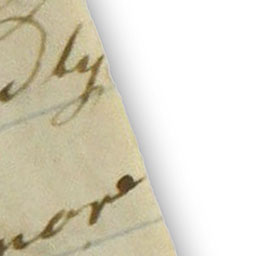 dly
more